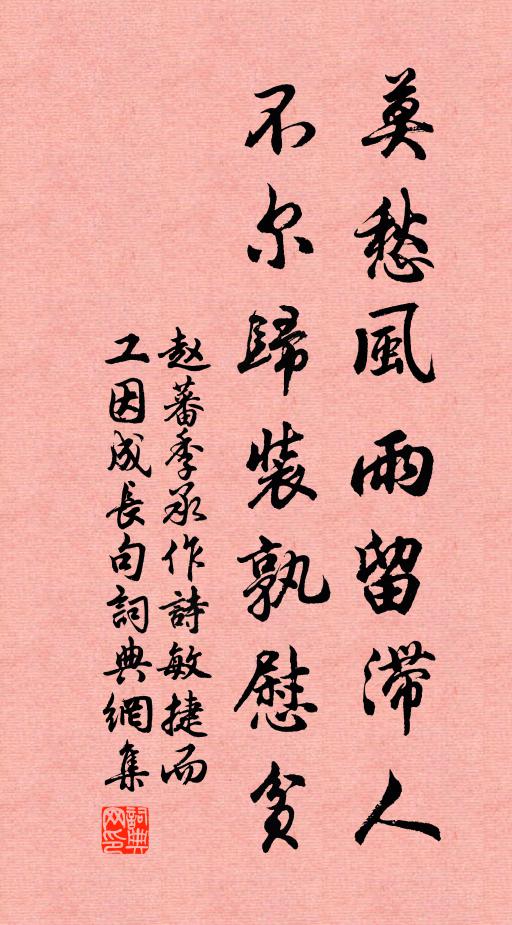 莫愁風雨留滞人
不尔歸裝孰慰貧
赵蕃季承作詩敏捷而
工因成長句詞典網集
詞典
网印